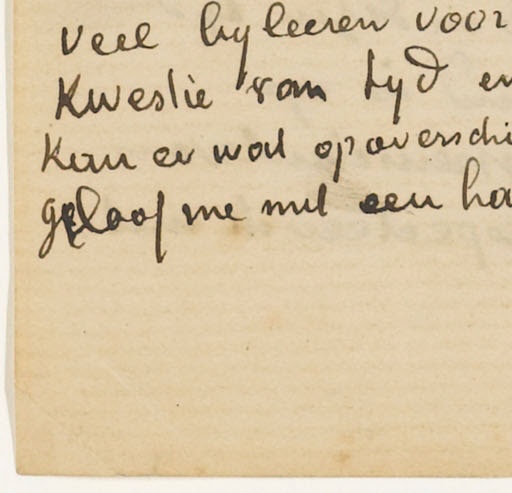 veel byleeren voor
Kwestie van tyd en
Kan er wat op overschi
geloof me met een ha